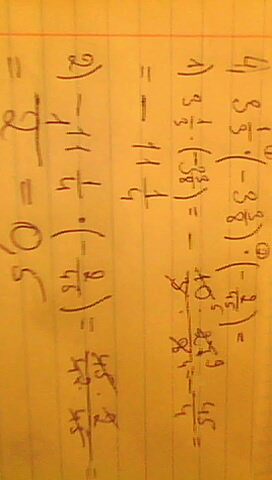 4) 3 1/3 · (-3 3/8) · (-2/45) =
1) 3 1/3 · (-3 3/8) = - 10 · 27 / 3 · 8 = 45/4 =
= - 11 1/4
2) - 11 1/4 · (-2/45) = 45 · 2 / 4 · 45 =
= 1/2 = 0,5